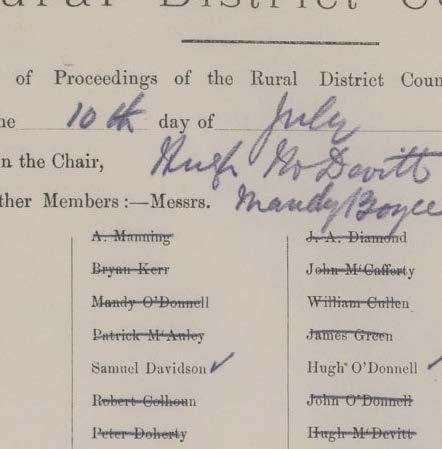 Rural District Co
of Proceedings of the Rural District Coun
he 10th day of July
in the Chair, Hugh McDevitt
ther Members :—Messrs. Mandy Boyce
A. Manning
Bryan Kerr
Mandy O'Donnell
Patrick McAuley
Samuel Davidson ✓
Robert Colhoun
Peter Doherty
J. A. Diamond
John McCafferty
William Cullen
James Green
Hugh O'Donnell ✓
John O'Donnell
Hugh McDevitt